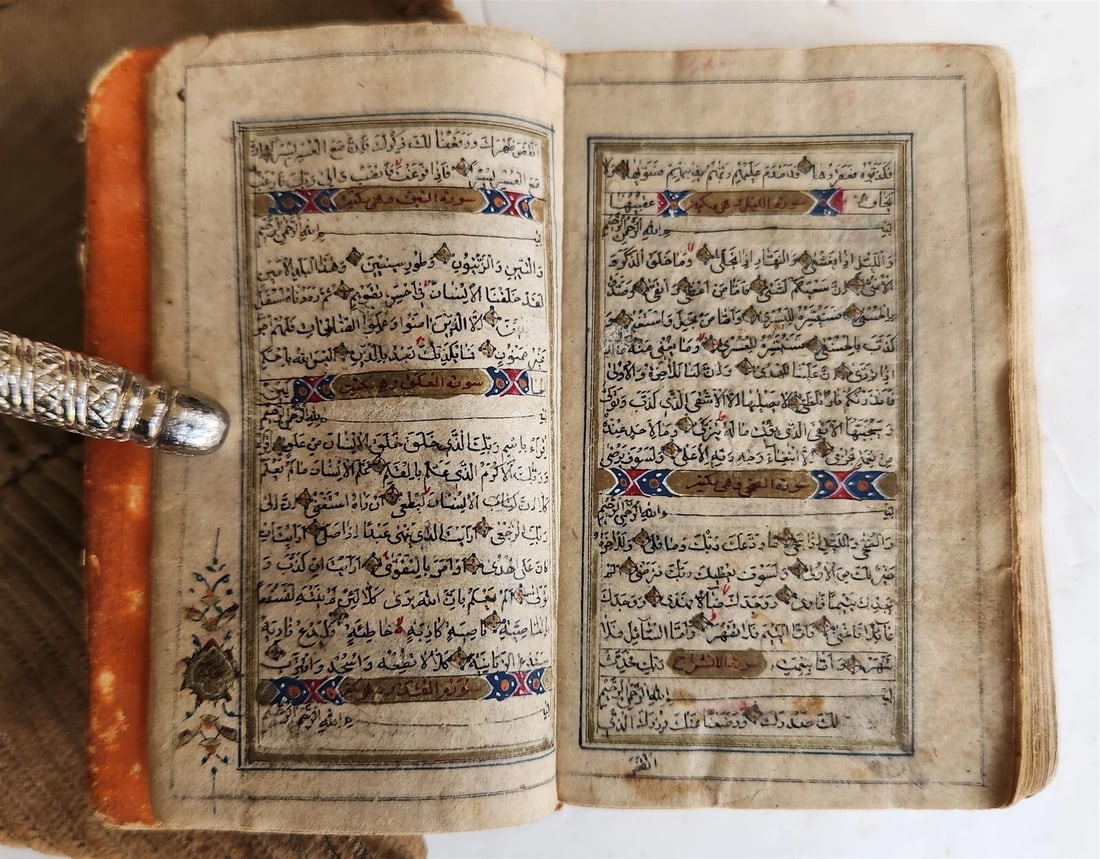 فكذبوه فعقروها فدمدم عليهم ربهم بذنبهم فسويها ولا
يخاف سورة الليل وهي مكية عقبيها
بسم الله الرحمن الرحيم
والليل اذا يغشى والنهار اذا تجلى وما خلق الذكر و
الانثى ان سعيكم لشتى فاما من اعطى واتقى وصدق
بالحسنى فسنيسره لليسرى واما من بخل واستغنى و
كذب بالحسنى فسنيسره للعسرى وما يغني عنه ماله
اذا تردى ان علينا للهدى وان لنا للاخرة والاولى
فانذرتكم نارا تلظى لا يصليها الا الاشقى الذى كذب وتولى
وسيجنبها الاتقى الذى يؤتى ماله يتزكى وما لاحد عنده
من نعمة تجزى الا ابتغاء وجه ربه الاعلى ولسوف يرضى
سورة الضحى وهي مكية
بسم الله الرحمن الرحيم
والضحى والليل اذا سجى ما ودعك ربك وما قلى وللاخرة
خير لك من الاولى ولسوف يعطيك ربك فترضى
يجدك يتيما فاوى ووجدك ضالا فهدى ووجدك
عائلا فاغنى فاما اليتيم فلا تقهر واما السائل فلا
تنهر واما بنعمت سورة الانشراح ربك فحدث
بسم الله الرحمن الرحيم
لك صدرك ووضعنا عنك وزرك الذي
انقض
انقض ظهرك ورفعنا لك ذكرك فان مع العسر يسرا ان
مع العسر يسرا فاذا فرغت فانصب والى ربك فارغب
سورة التين وهي مكية
بسم الله الرحمن الرحيم
والتين والزيتون وطور سينين وهذا البلد الامين
لقد خلقنا الانسان في احسن تقويم ثم رددناه اسفل
سافلين الا الذين امنوا وعملوا الصالحات فلهم اجر
غير ممنون فما يكذبك بعد بالدين اليس الله باحكم
الحا سورة العلق وهي مكية كمين
بسم الله الرحمن الرحيم
اقراء باسم ربك الذى خلق خلق الانسان من علق اقرا
وربك الاكرم الذى علم بالقلم علم الانسان ما لم يعلم
كلا ان الانسان ليطغى ان راه استغنى ان الى
ربك الرجعى ارايت الذى ينهى عبدا اذا صلى ارايت ان
كان على الهدى او امر بالتقوى ارايت ان كذب و
تولى الم يعلم بان الله يرى كلا لئن لم ينته لنسفعا
بالناصية ناصية كاذبة خاطئة فليدع ناديه
سندع الزبانية كلا لا تطعه واسجد واقترب
سورة القدر وهي مكية
بسم الله الرحمن الرحيم